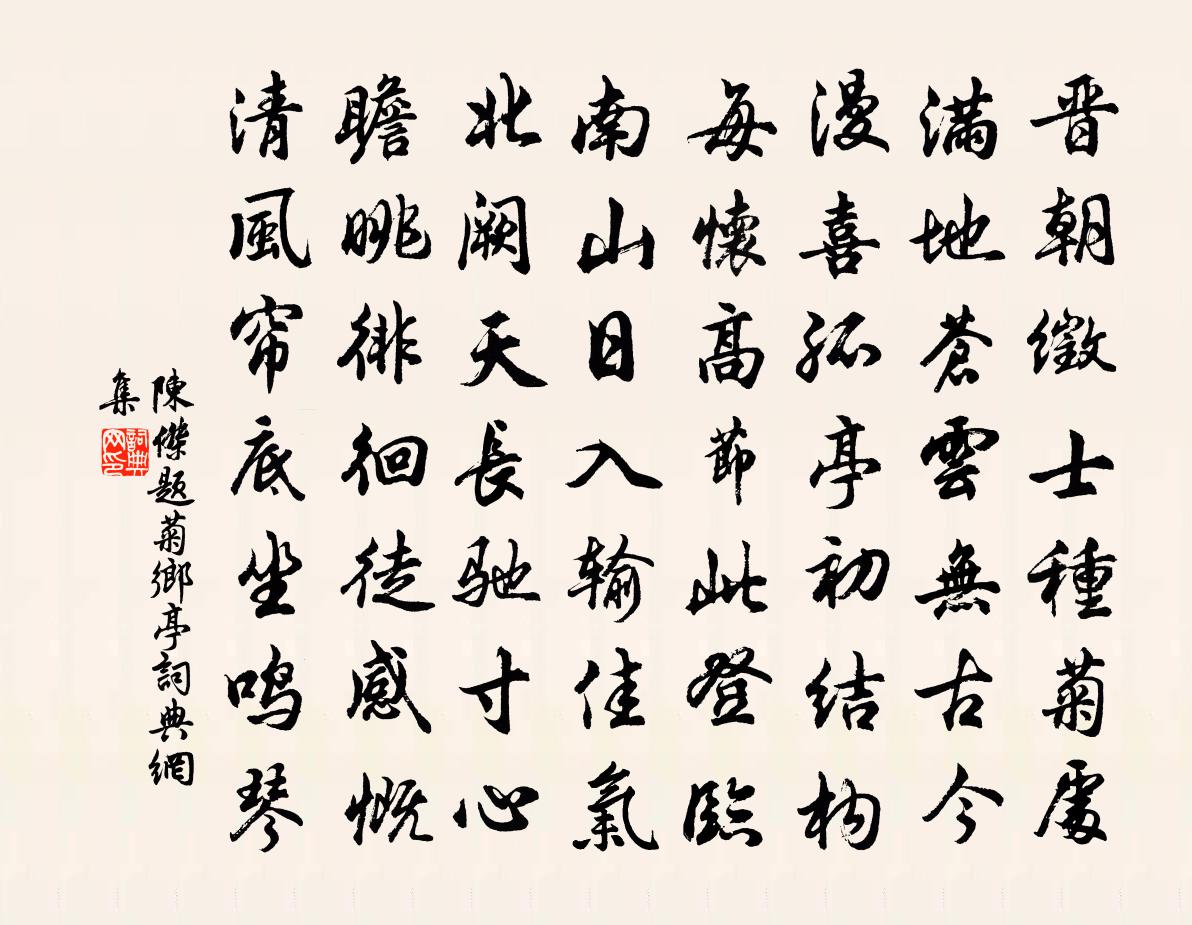 晋朝徵士種菊處
滿地蒼雲無古今
漫喜孤亭初結构
每懷高節此登臨
南山日入输佳氣
北阙天長驰寸心
瞻眺徘徊徒感慨
清風帘底坐鸣琴
陳傑题菊鄉亭詞典網
集
詞典网印